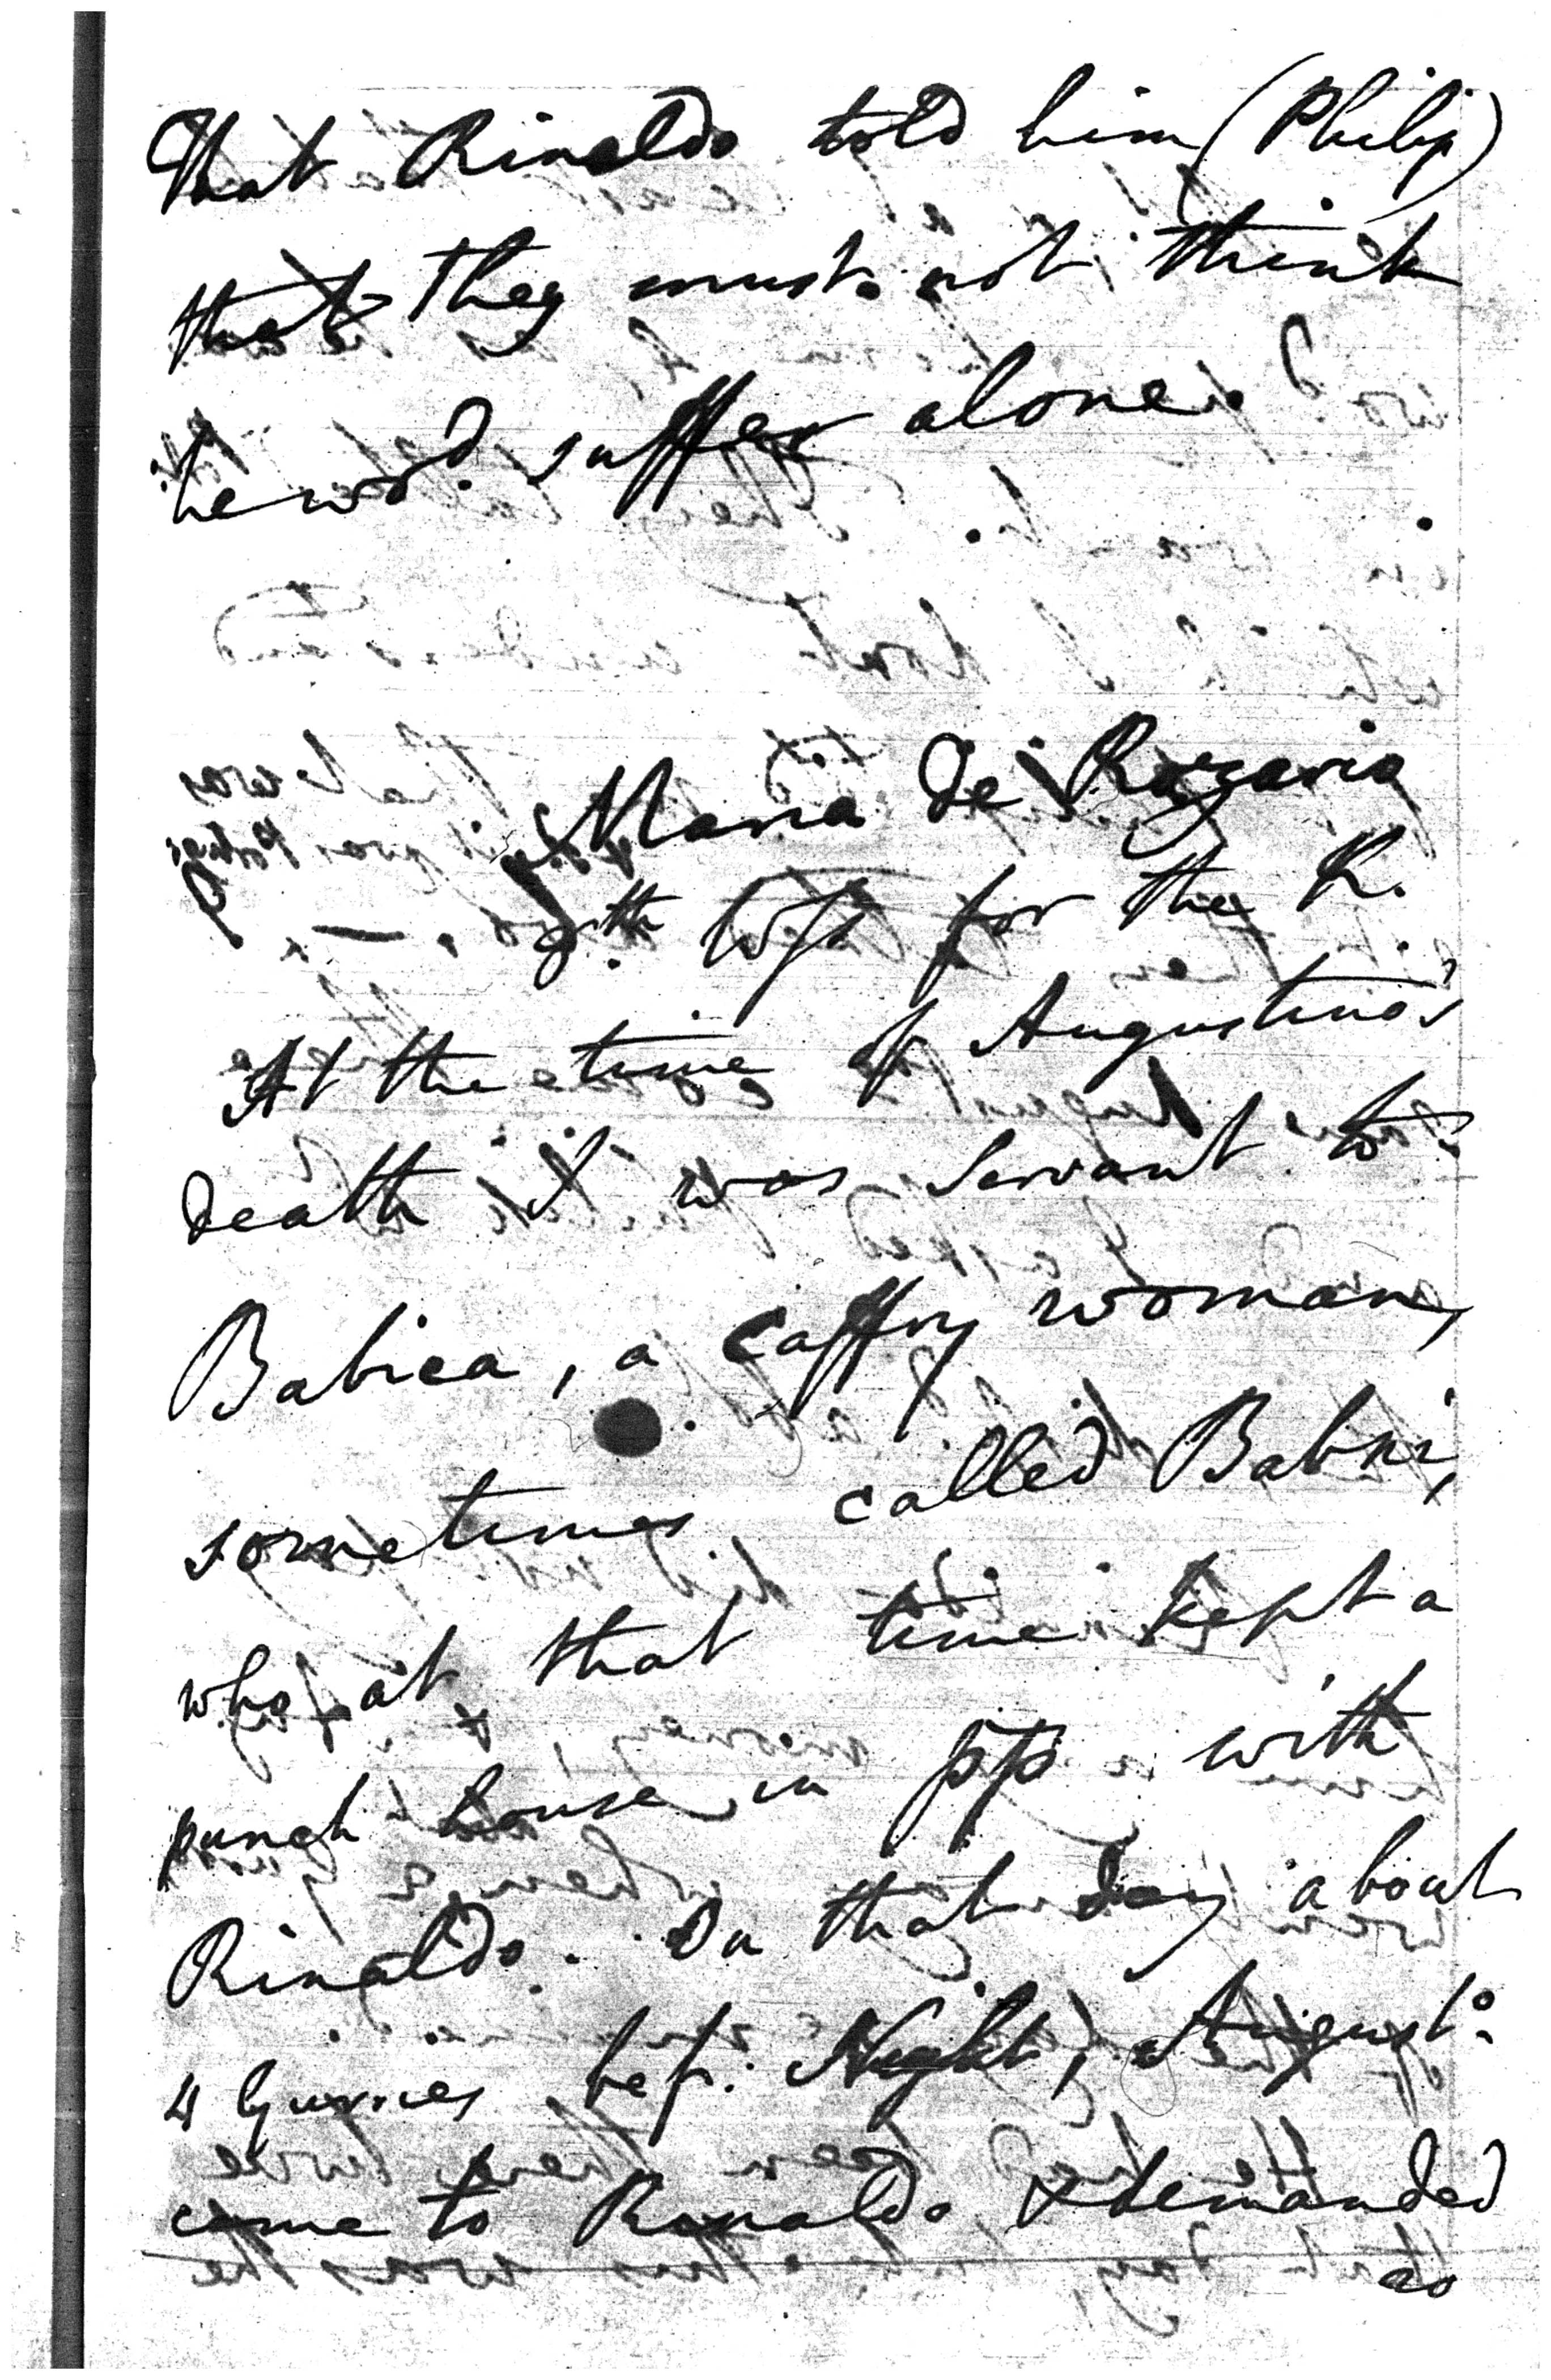 That Rinaldo told him (Philip)
that they must not think
he wod. suffer alone.
Maria de Rozario
8th. Wss for the K.
At the time of Augustino's
death I was Servant to
Babica, a Caffry woman,
sometimes called Babni,
who at that time kept a
punch house in pp with
Rinaldo. On that day about
4 Gurries bef. Night, Augusto.
came to Ronaldo & demanded